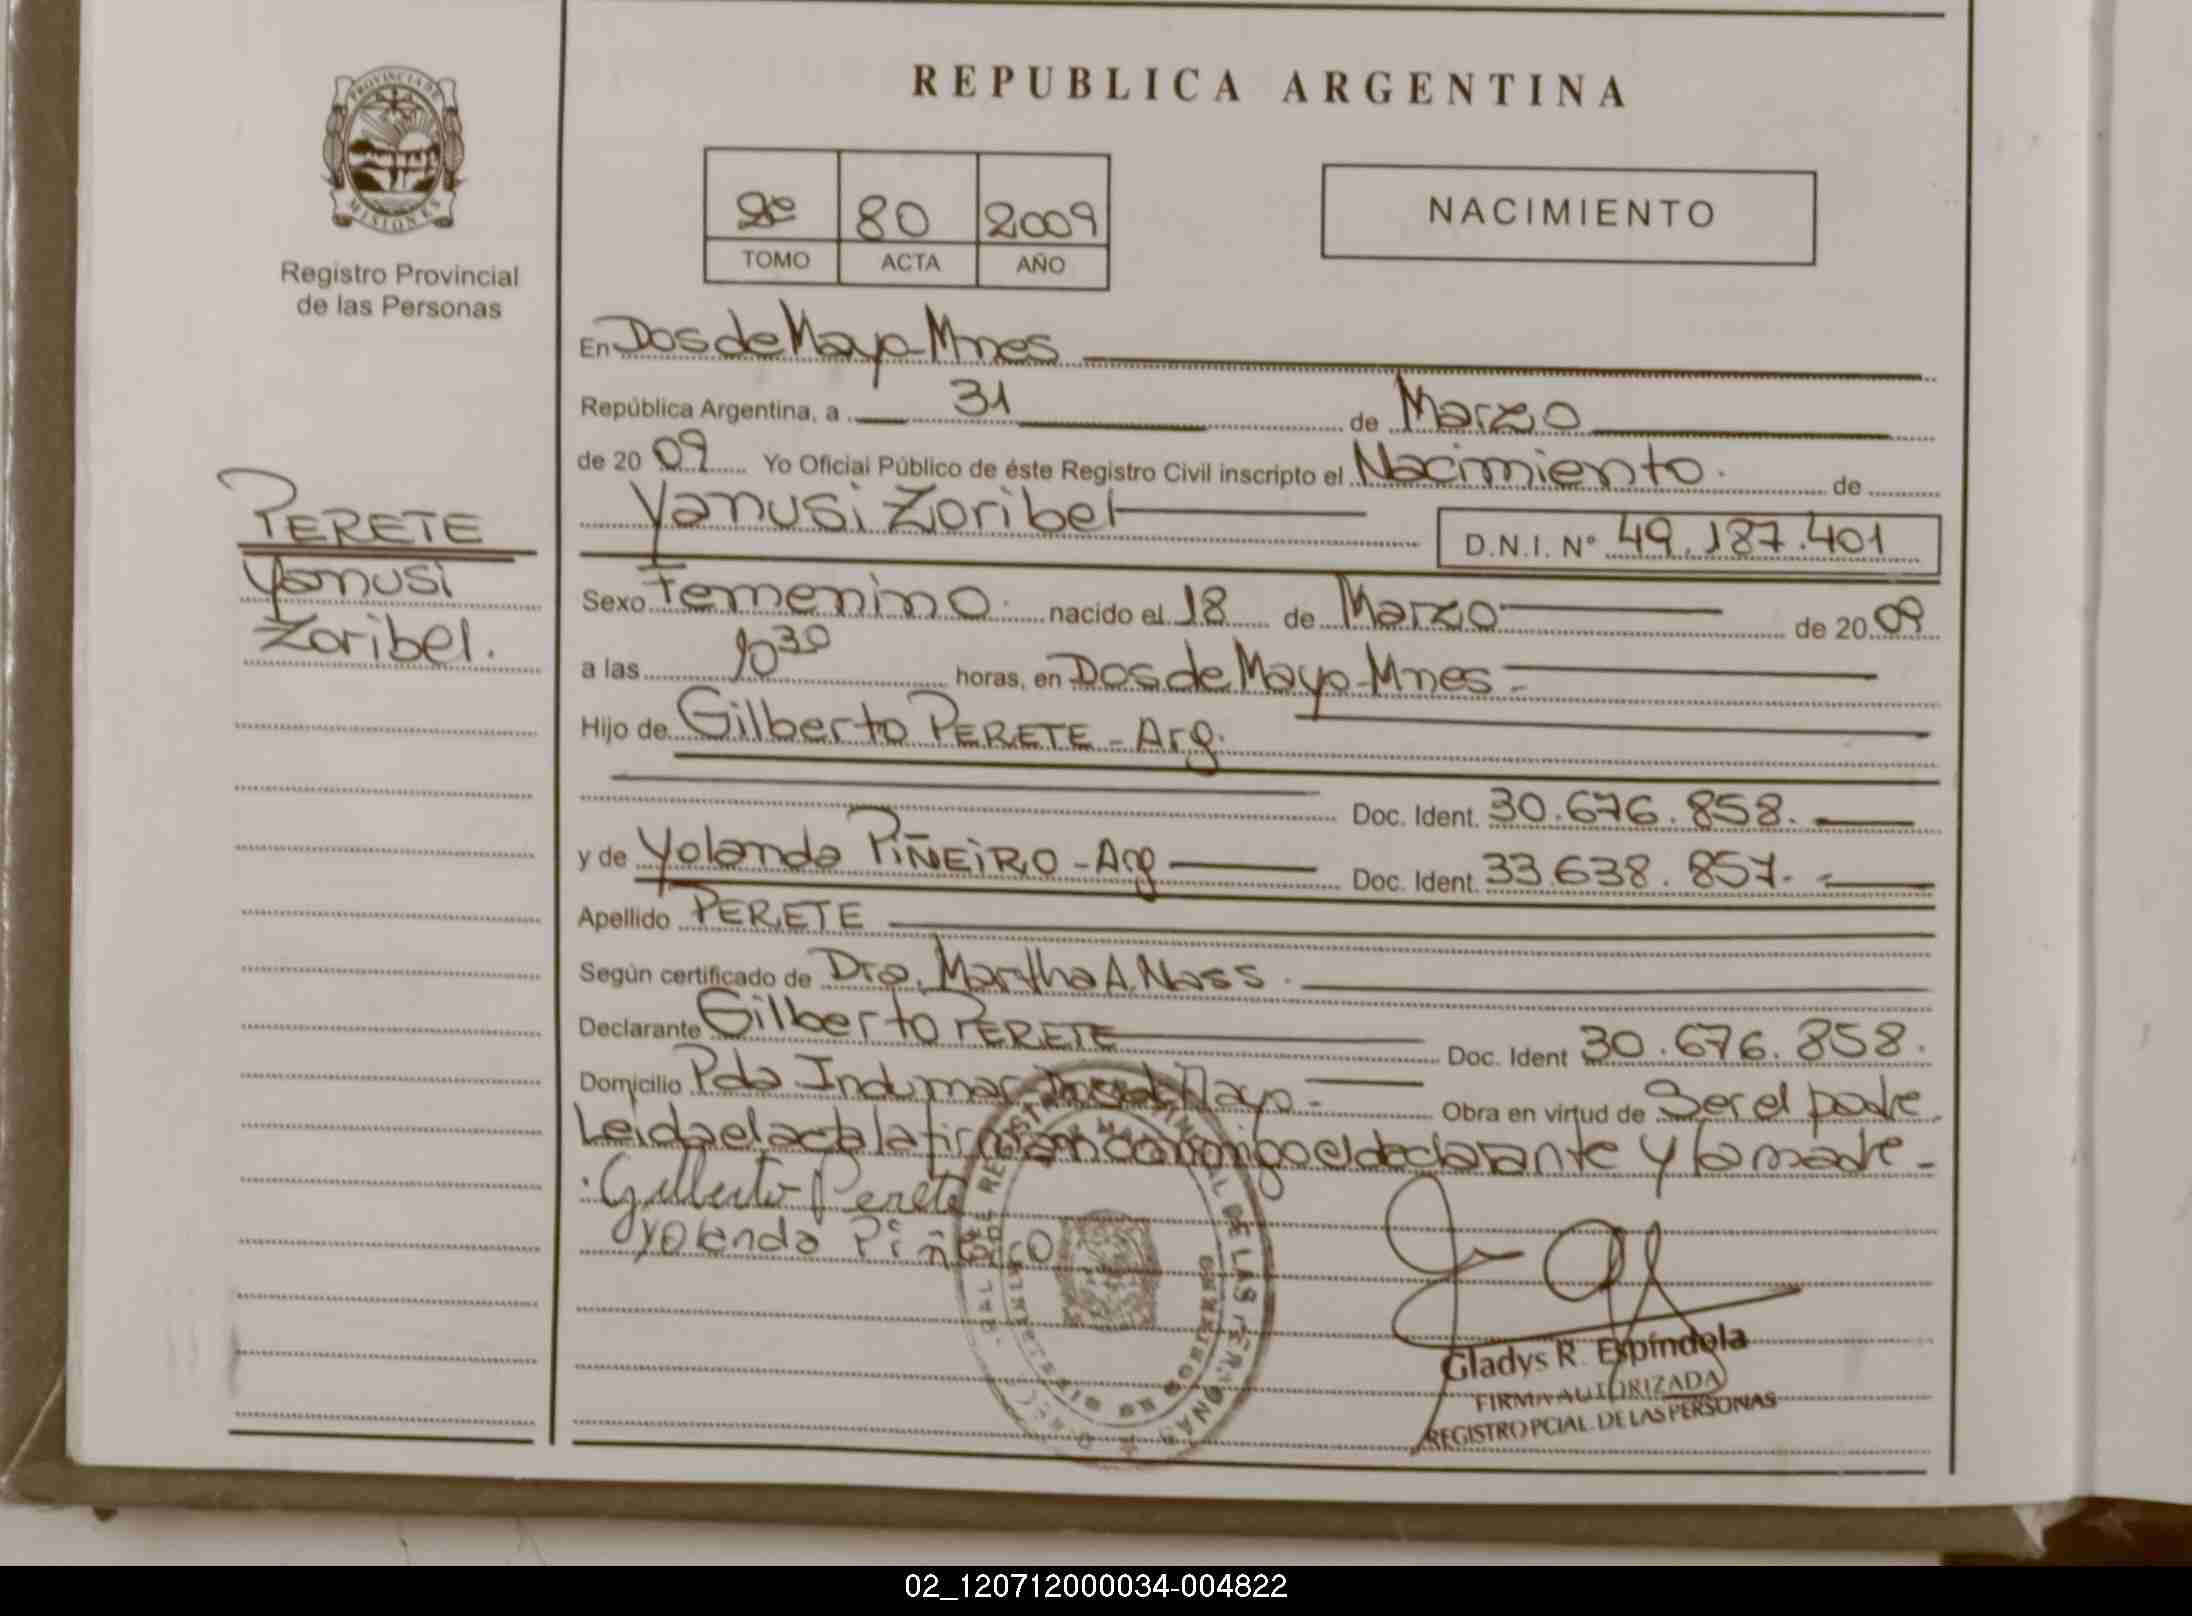 PROVINCIA DE
MISIONES
Registro Provincial
de las Personas
REPUBLICA ARGENTINA
2º 80 2009
TOMO ACTA AÑO
NACIMIENTO
PERETE
Yanusi
Zoribel.
En Dos de Mayo-Mnes
República Argentina, a 31 de Marzo
de 2009 Yo Oficial Público de éste Registro Civil inscripto el Nacimiento. de
Yanusi Zoribel D.N.I. Nº 49.187.401
Sexo Femenino. nacido el 18 de Marzo de 2009
a las 10 30 horas, en Dos de Mayo-Mnes-
Hijo de Gilberto PERETE - Arg.
Doc. Ident. 30.676.858.
y de Yolanda PIÑEIRO - Arg Doc. Ident. 33.638.857.-
Apellido PERETE
Según certificado de Dra. Martha A. Nass.
Declarante Gilberto PERETE Doc. Ident 30.676.858.
Domicilio Pda Indumar Dos de Mayo- Obra en virtud de Ser el padre
Leida el acta la firman conmigo el declarante y la madre-
Gilberto Perete
Yolanda Piñeiro
Gladys R. Espíndola
FIRMA AUTORIZADA
REGISTRO PCIAL. DE LAS PERSONAS
02_120712000034-004822